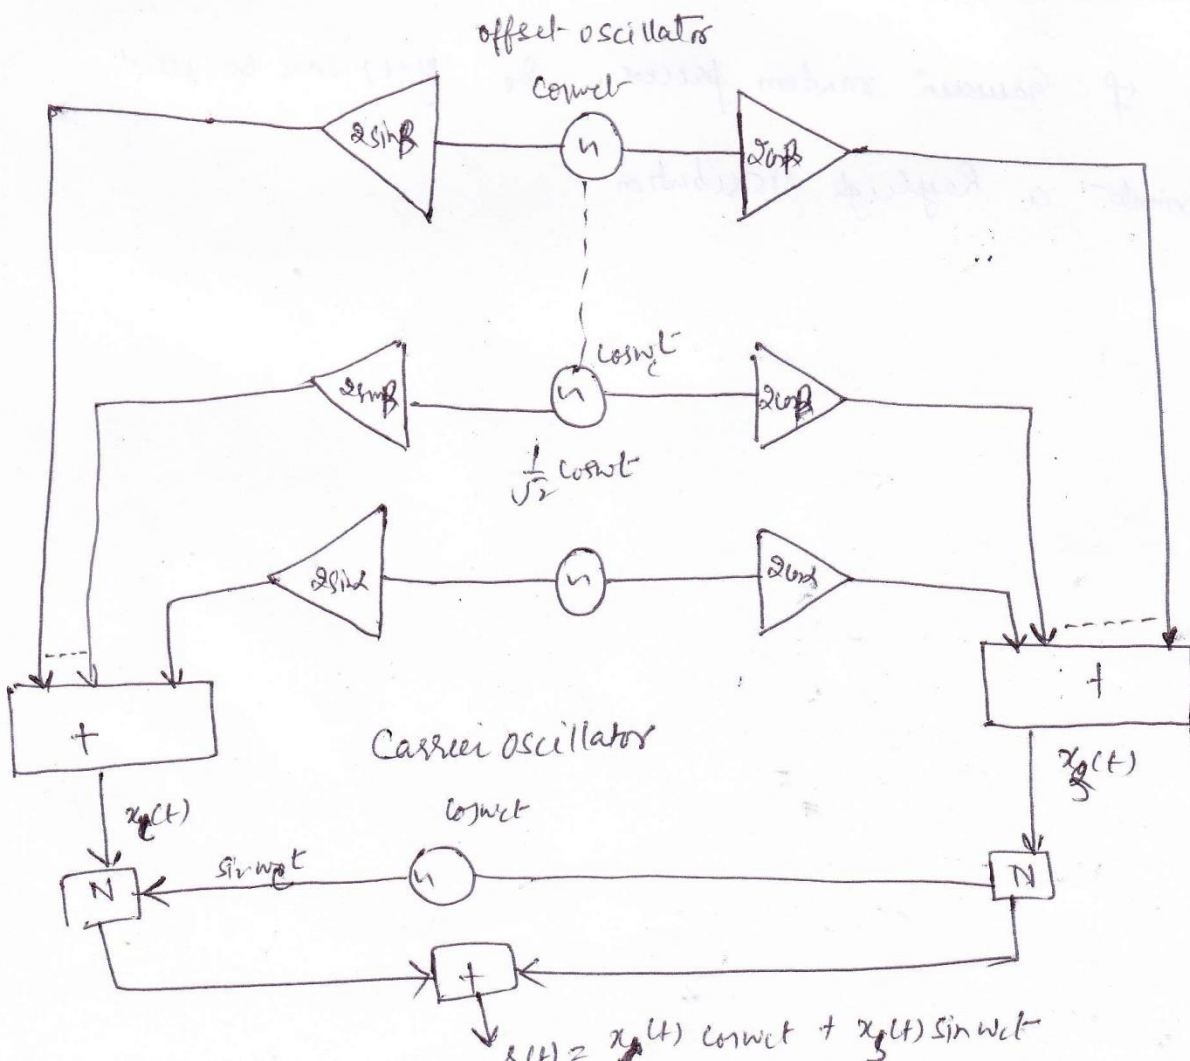 offset oscillator
coswct
2sinβ
2cosβ
coswct
2sinβ
2cosβ
1/√2 coswt
2sinα
2cosα
+
+
Carrier oscillator
coswct
sinwct
+
(t) coswct + (t) sinwct